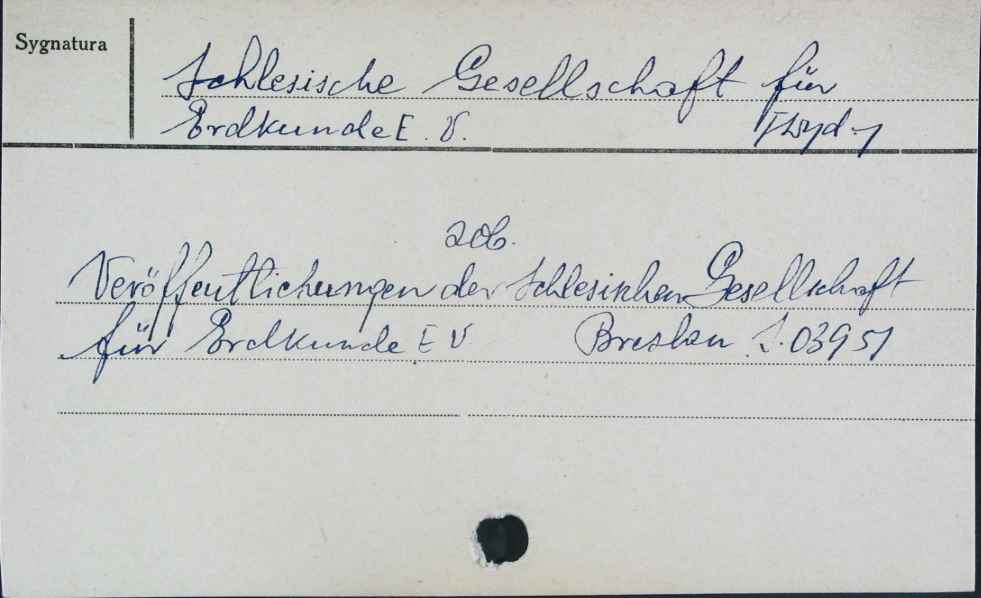 Sygnatura
Schlesische Gesellschaft für
Erdkunde E. V. Hwyd-y
zob.
Veröffentlichungen der Schlesischen Gesellschaft
für Erdkunde E V Breslau S. 03951